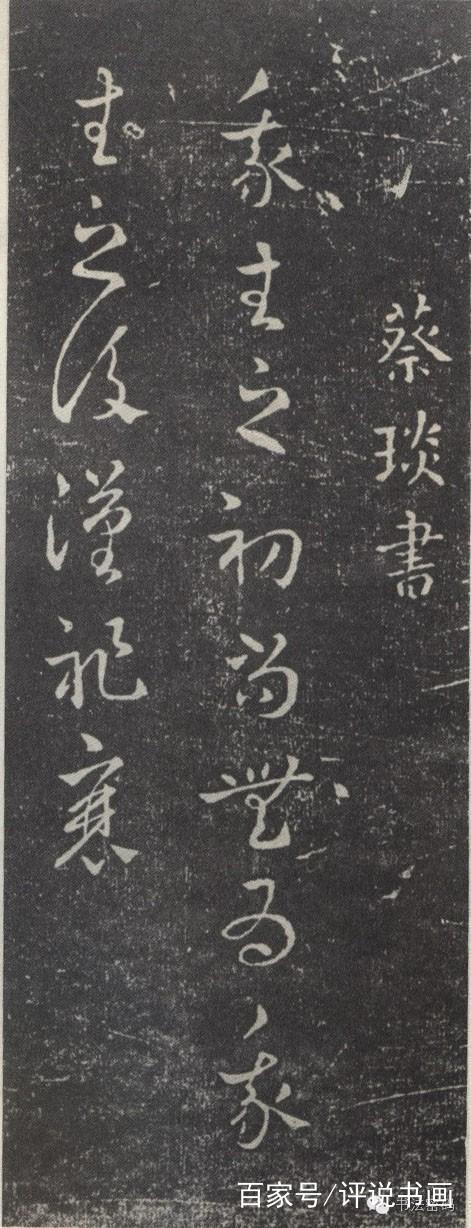 蔡琰書
我生之初尚無為我
生之後漢祚衰
百家号/评说书画
书法密码